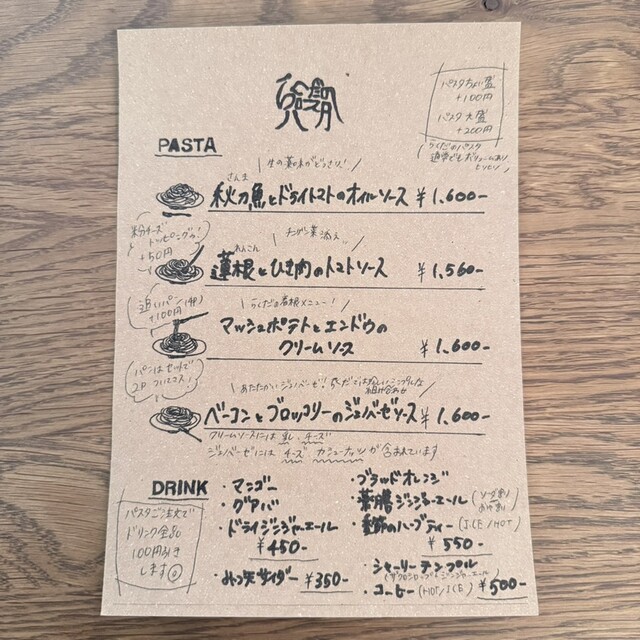 パスタちょい盛
+100円
パスタ大盛
+200円
らくだのパスタ
通常でもボリュームあり
PASTA
生の薬味がどっさり!
さんま
秋刀魚とドライトマトのオイルソース ¥1,600-
粉チーズ
トッピング
+50円
れんこん
蓮根とひき肉のトマトソース ¥1,560-
追いパン
+100円
らくだの看板メニュー!
マッシュポテトとエンドウの
クリームソース ¥1,600-
パンはセットで
2P ついてくる!
あたたかいジェノベーゼ!
ベーコンとブロッコリーのジェノベーゼソース ¥1,600-
クリームソースには 乳、チーズ
ジェノベーゼには チーズ カシューナッツが含まれています
DRINK
パスタご注文で
ドリンク全品
100円引き
します
・マンゴー
・グアバ
・ドライジンジャーエール
¥450-
みつ矢サイダー ¥350-
・ブラッドオレンジ
・薬膳ジンジャーエール
・季節のハーブティー (ICE/HOT)
¥550-
・シャーリーテンプル
(ザクロシロップ&ジンジャーエール)
・コーヒー (HOT/ICE) ¥500-